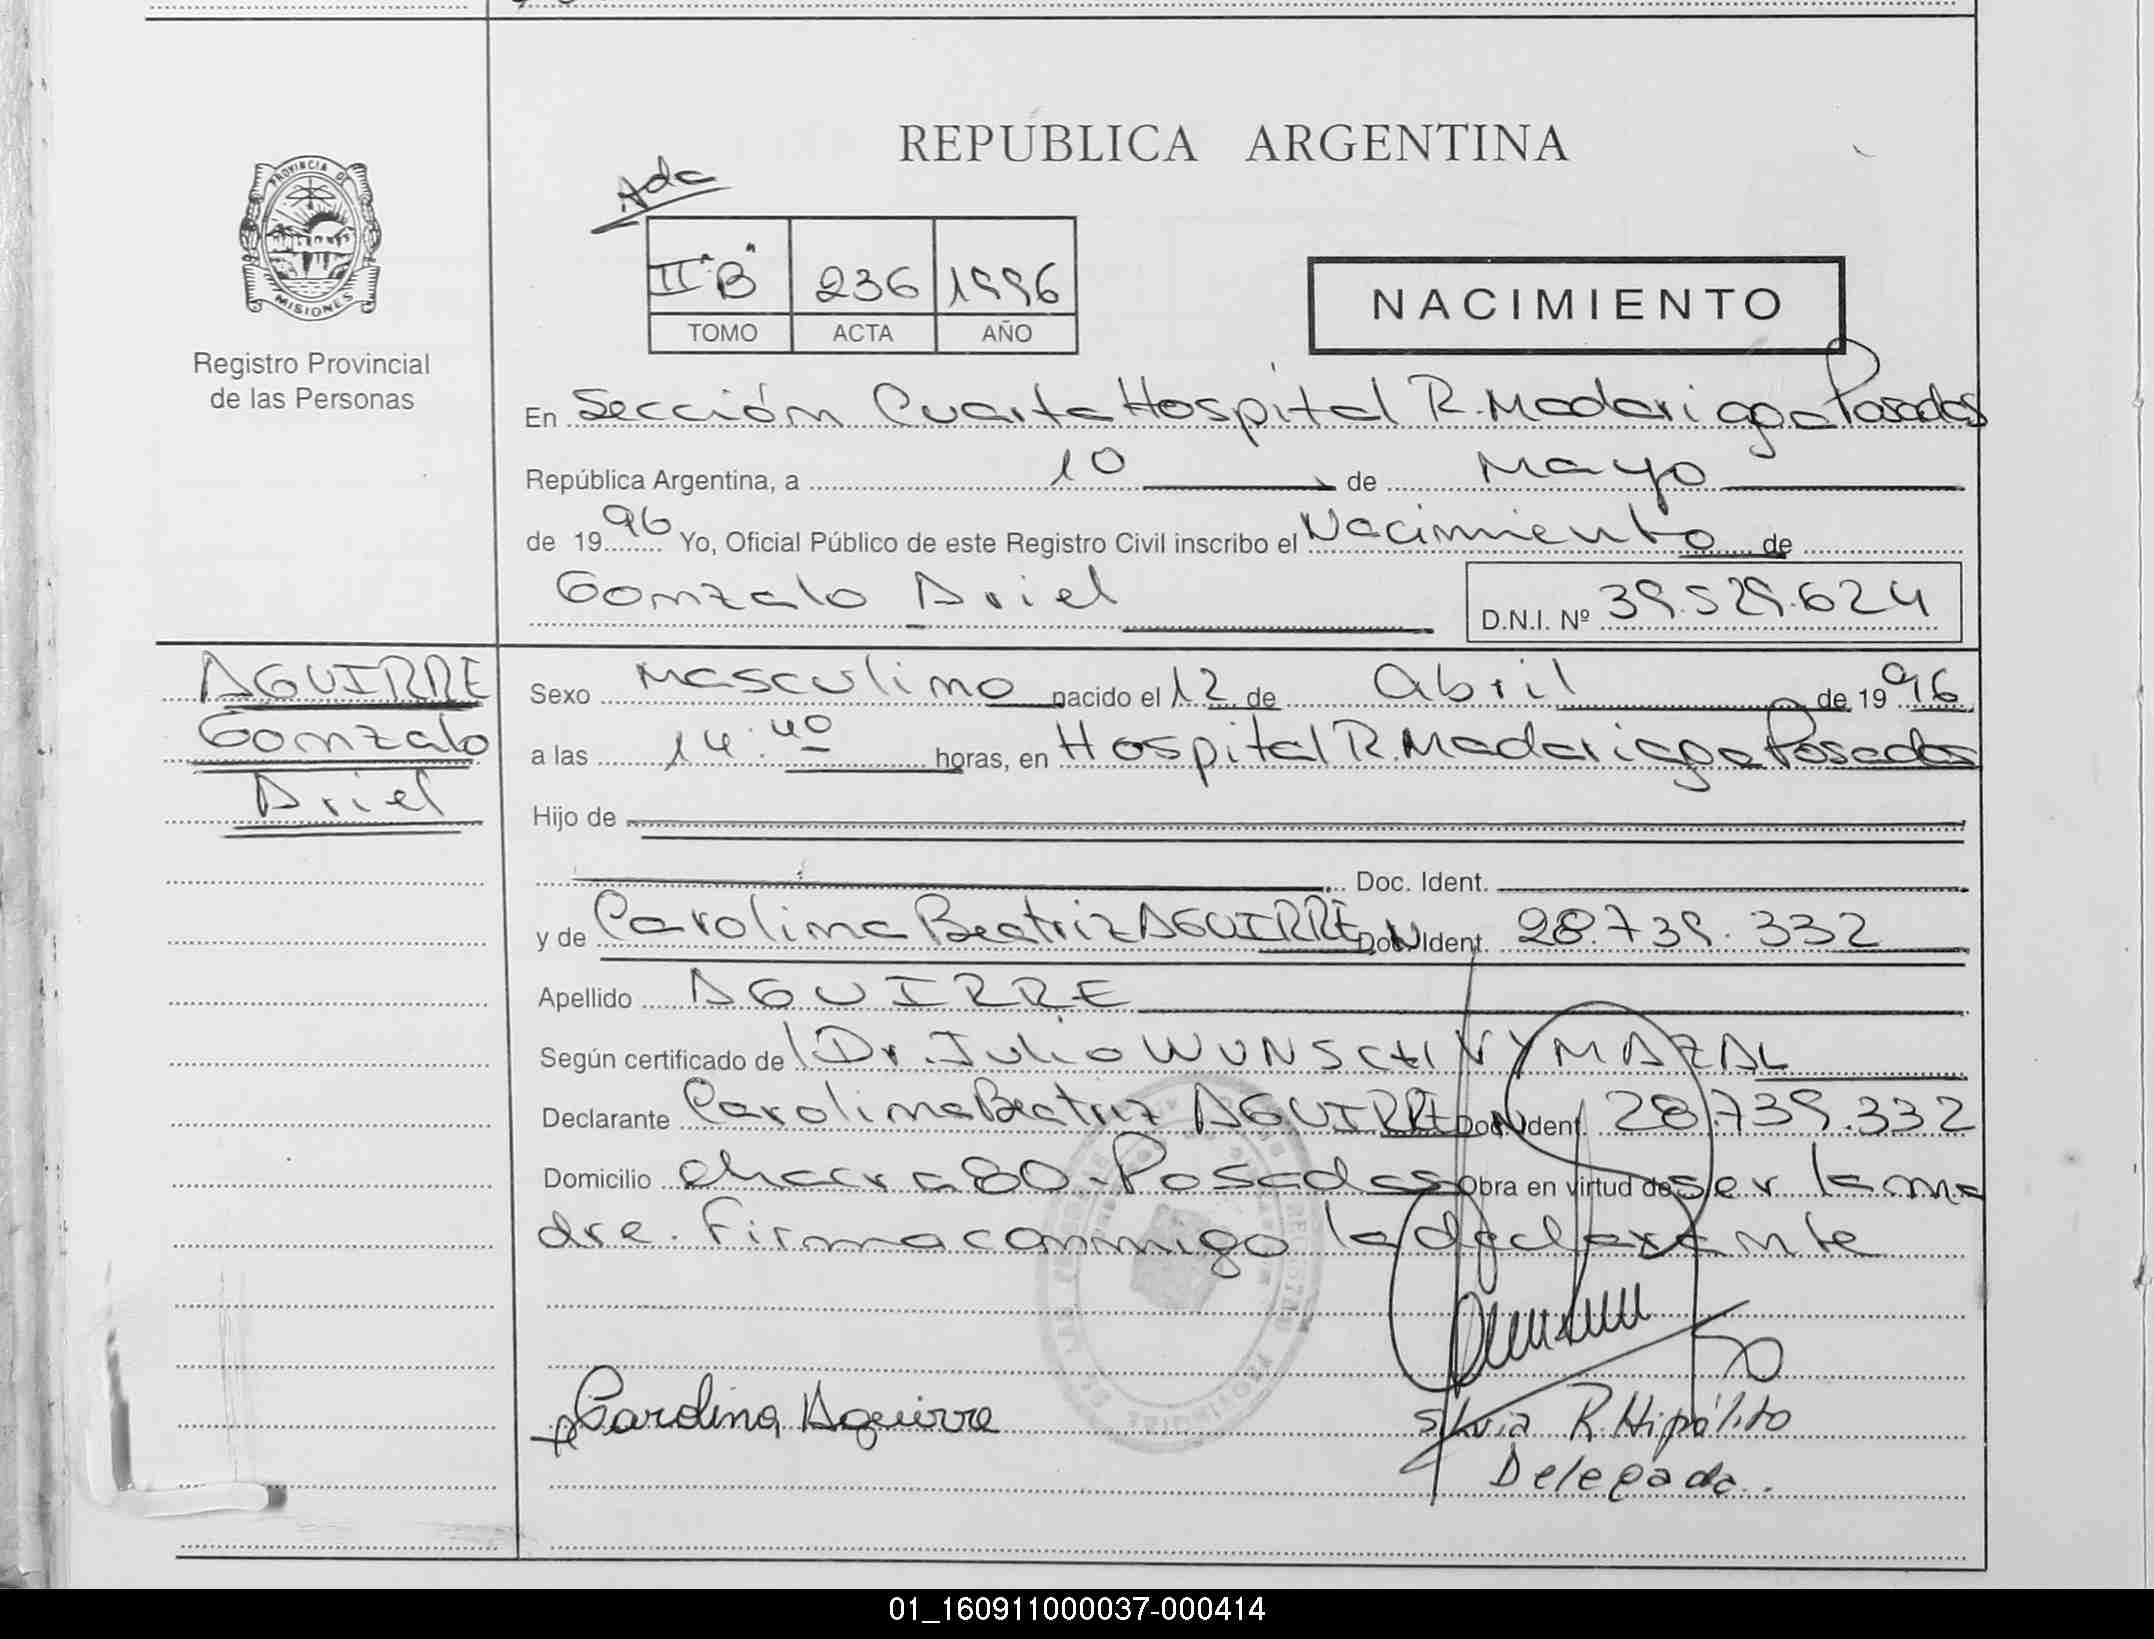 REPUBLICA ARGENTINA
PROVINCIA DE
MISIONES
Registro Provincial
de las Personas
Ada
II "B" 236 1996
TOMO ACTA AÑO
NACIMIENTO
En Sección Cuarta Hospital R. Madariaga Posadas
República Argentina, a 10 de Mayo
de 1996 Yo, Oficial Público de este Registro Civil inscribo el Nacimiento de
Gonzalo Ariel
D.N.I. Nº 39.529.624
AGUIRRE
Gonzalo
Ariel
Sexo Masculino nacido el 12 de Abril de 1996
a las 14:40 horas, en Hospital R. Madariaga Posadas
Hijo de
Doc. Ident.
y de Carolina Beatriz AGUIRRE Doc. Ident. 28.739.332
Apellido AGUIRRE
Según certificado de Dr. Julio WUNSCH VYMAZAL
Declarante Carolina Beatriz AGUIRRE Doc. Ident. 28.739.332
Domicilio chacra 80. Posadas Obra en virtud de ser la ma
dre. Firma conmigo la declarante
Carolina Aguirre
Silvia R. Hipólito
Delegada.
01_160911000037-000414